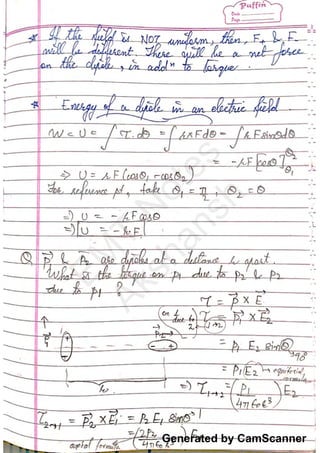 Puffin
Date
Page
* If the field is NOT uniform, then, F+ & F-
will be different. There will be a net force
on the dipole, in addn to torque.
* Energy of a dipole in an electric field
W = U = ∫ τ.dθ = ∫ p×E dθ = ∫ p E sinθ dθ
= -pE [cosθ]θ2 θ1
⇒ U = pE (cosθ1 - cosθ2)
For reference pt, take θ1 = π/2, θ2 = θ
⇒ U = -pE cosθ
⇒ U = -p.E
Q P1 & P2 are dipoles at a distance r apart.
What is the torque on p1 due to p2 & p2
due to p1 ?
τ = P × E
(on 1 due to 2) τ1→2 = P1 × E2
P1
P2
= P1 E2 sinθ 90
= P1 E2 → equatorial formula
r
⇒ τ1→2 = (P1 / 4πε0r³) E2
τ2→1 = P2 × E1 = P2 E1 sinθ 1
axial formula = (2P2 / 4πε0r³) E1
Generated by CamScanner